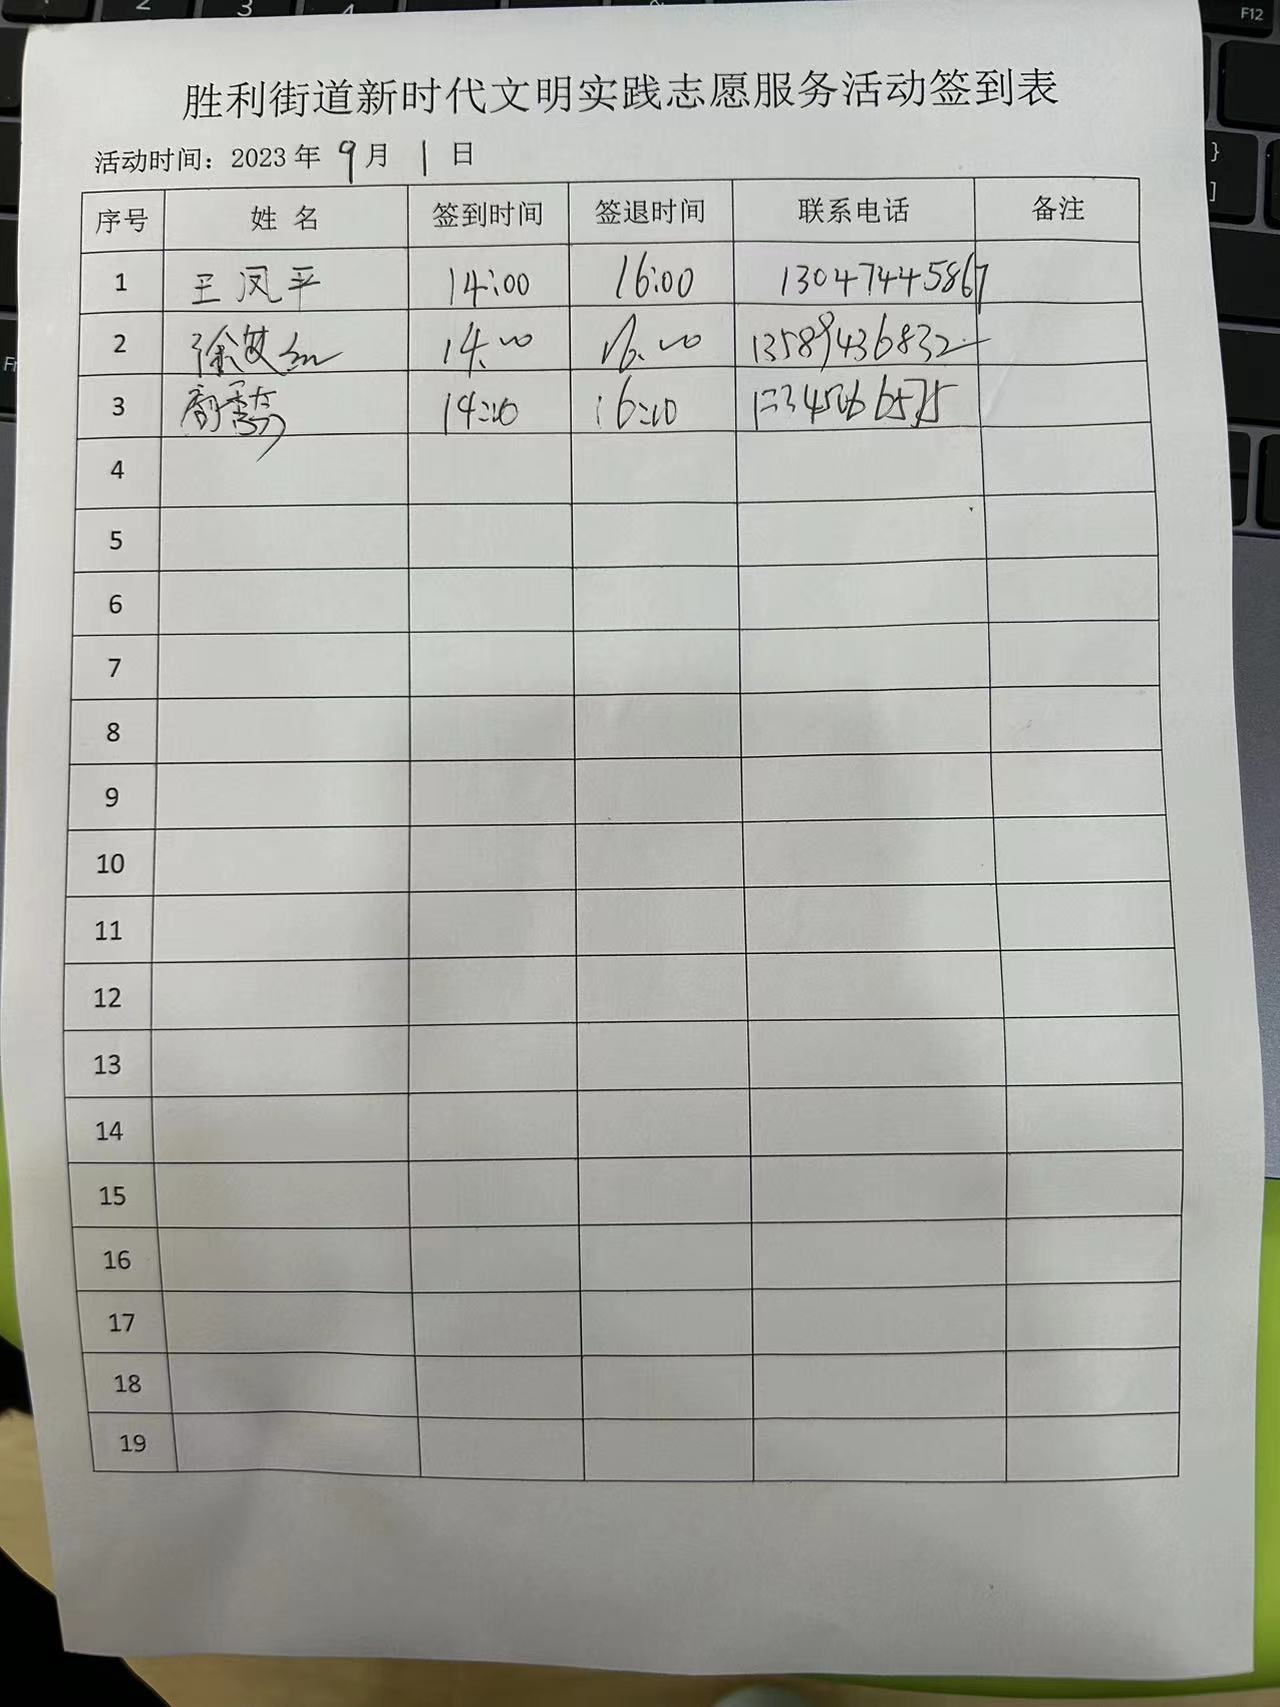 胜利街道新时代文明实践志愿服务活动签到表
活动时间：2023 年 9 月 1 日
序号 姓 名 签到时间 签退时间 联系电话 备注
1 王凤平 14:00 16:00 13047445867
2 徐 14:00 16:00 13589436832
3 14:00 16:00
4
5
6
7
8
9
10
11
12
13
14
15
16
17
18
19